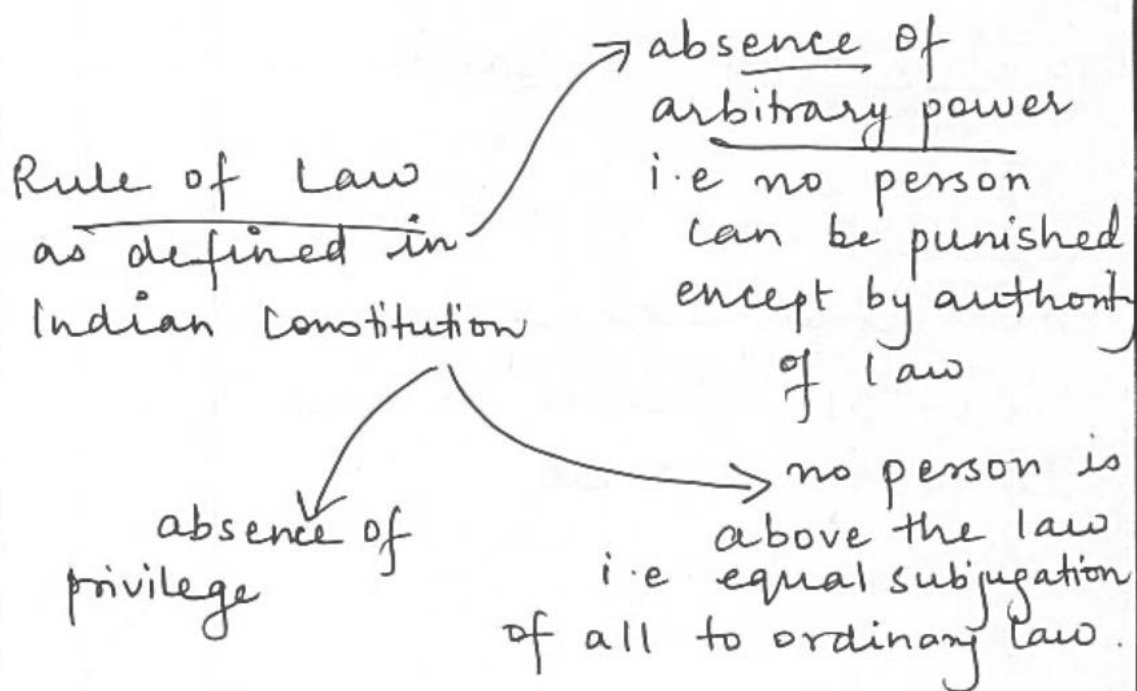 Rule of Law
as defined in
Indian Constitution
absence of
arbitrary power
i.e no person
can be punished
except by authority
of law
absence of
privilege
no person is
above the law
i.e equal subjugation
of all to ordinary law.